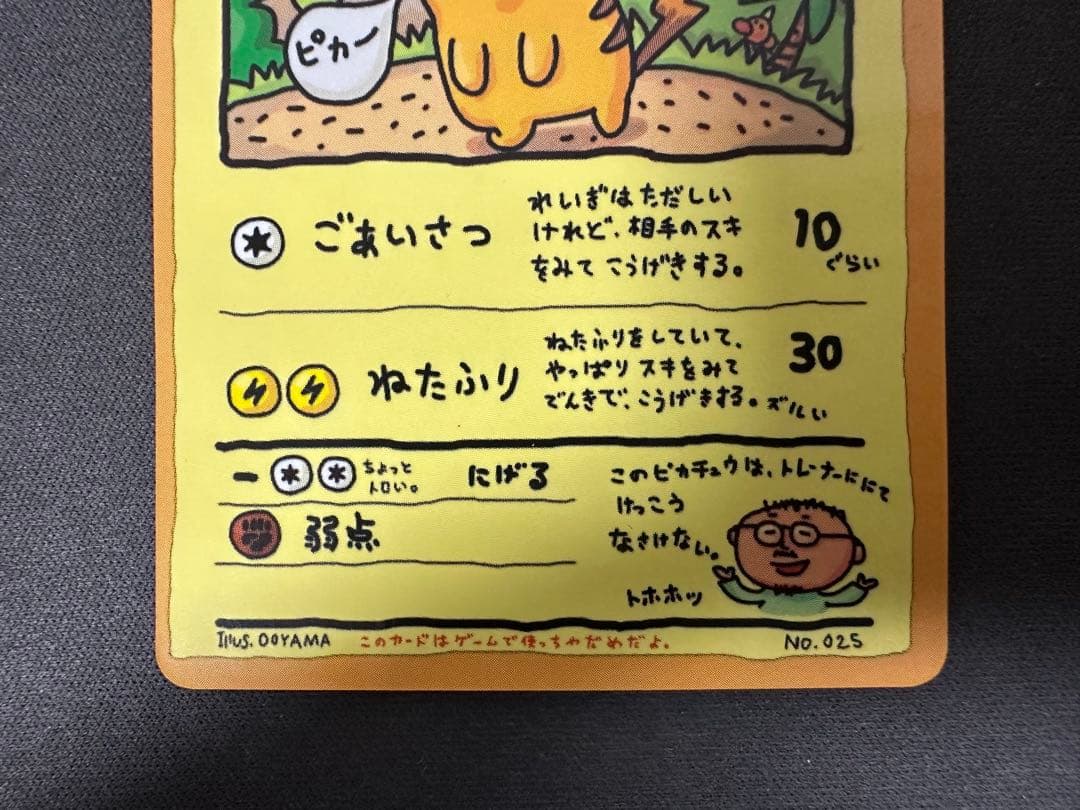 ピカー
ごあいさつ
れいぎはただしい
けれど、相手のスキ
をみてこうげきする。
10
ぐらい
ねたふり
ねたふりをしていて、
やっぱりスキをみて
でんきで、こうげきする。ズルい
30
ー
ちょっと
トロい。
にげる
弱点
このピカチュウは、トレーナーににて
けっこう
なさけない。
トホホッ
Illus. OOYAMA
このカードはゲームで使っちゃだめだよ。
NO.025